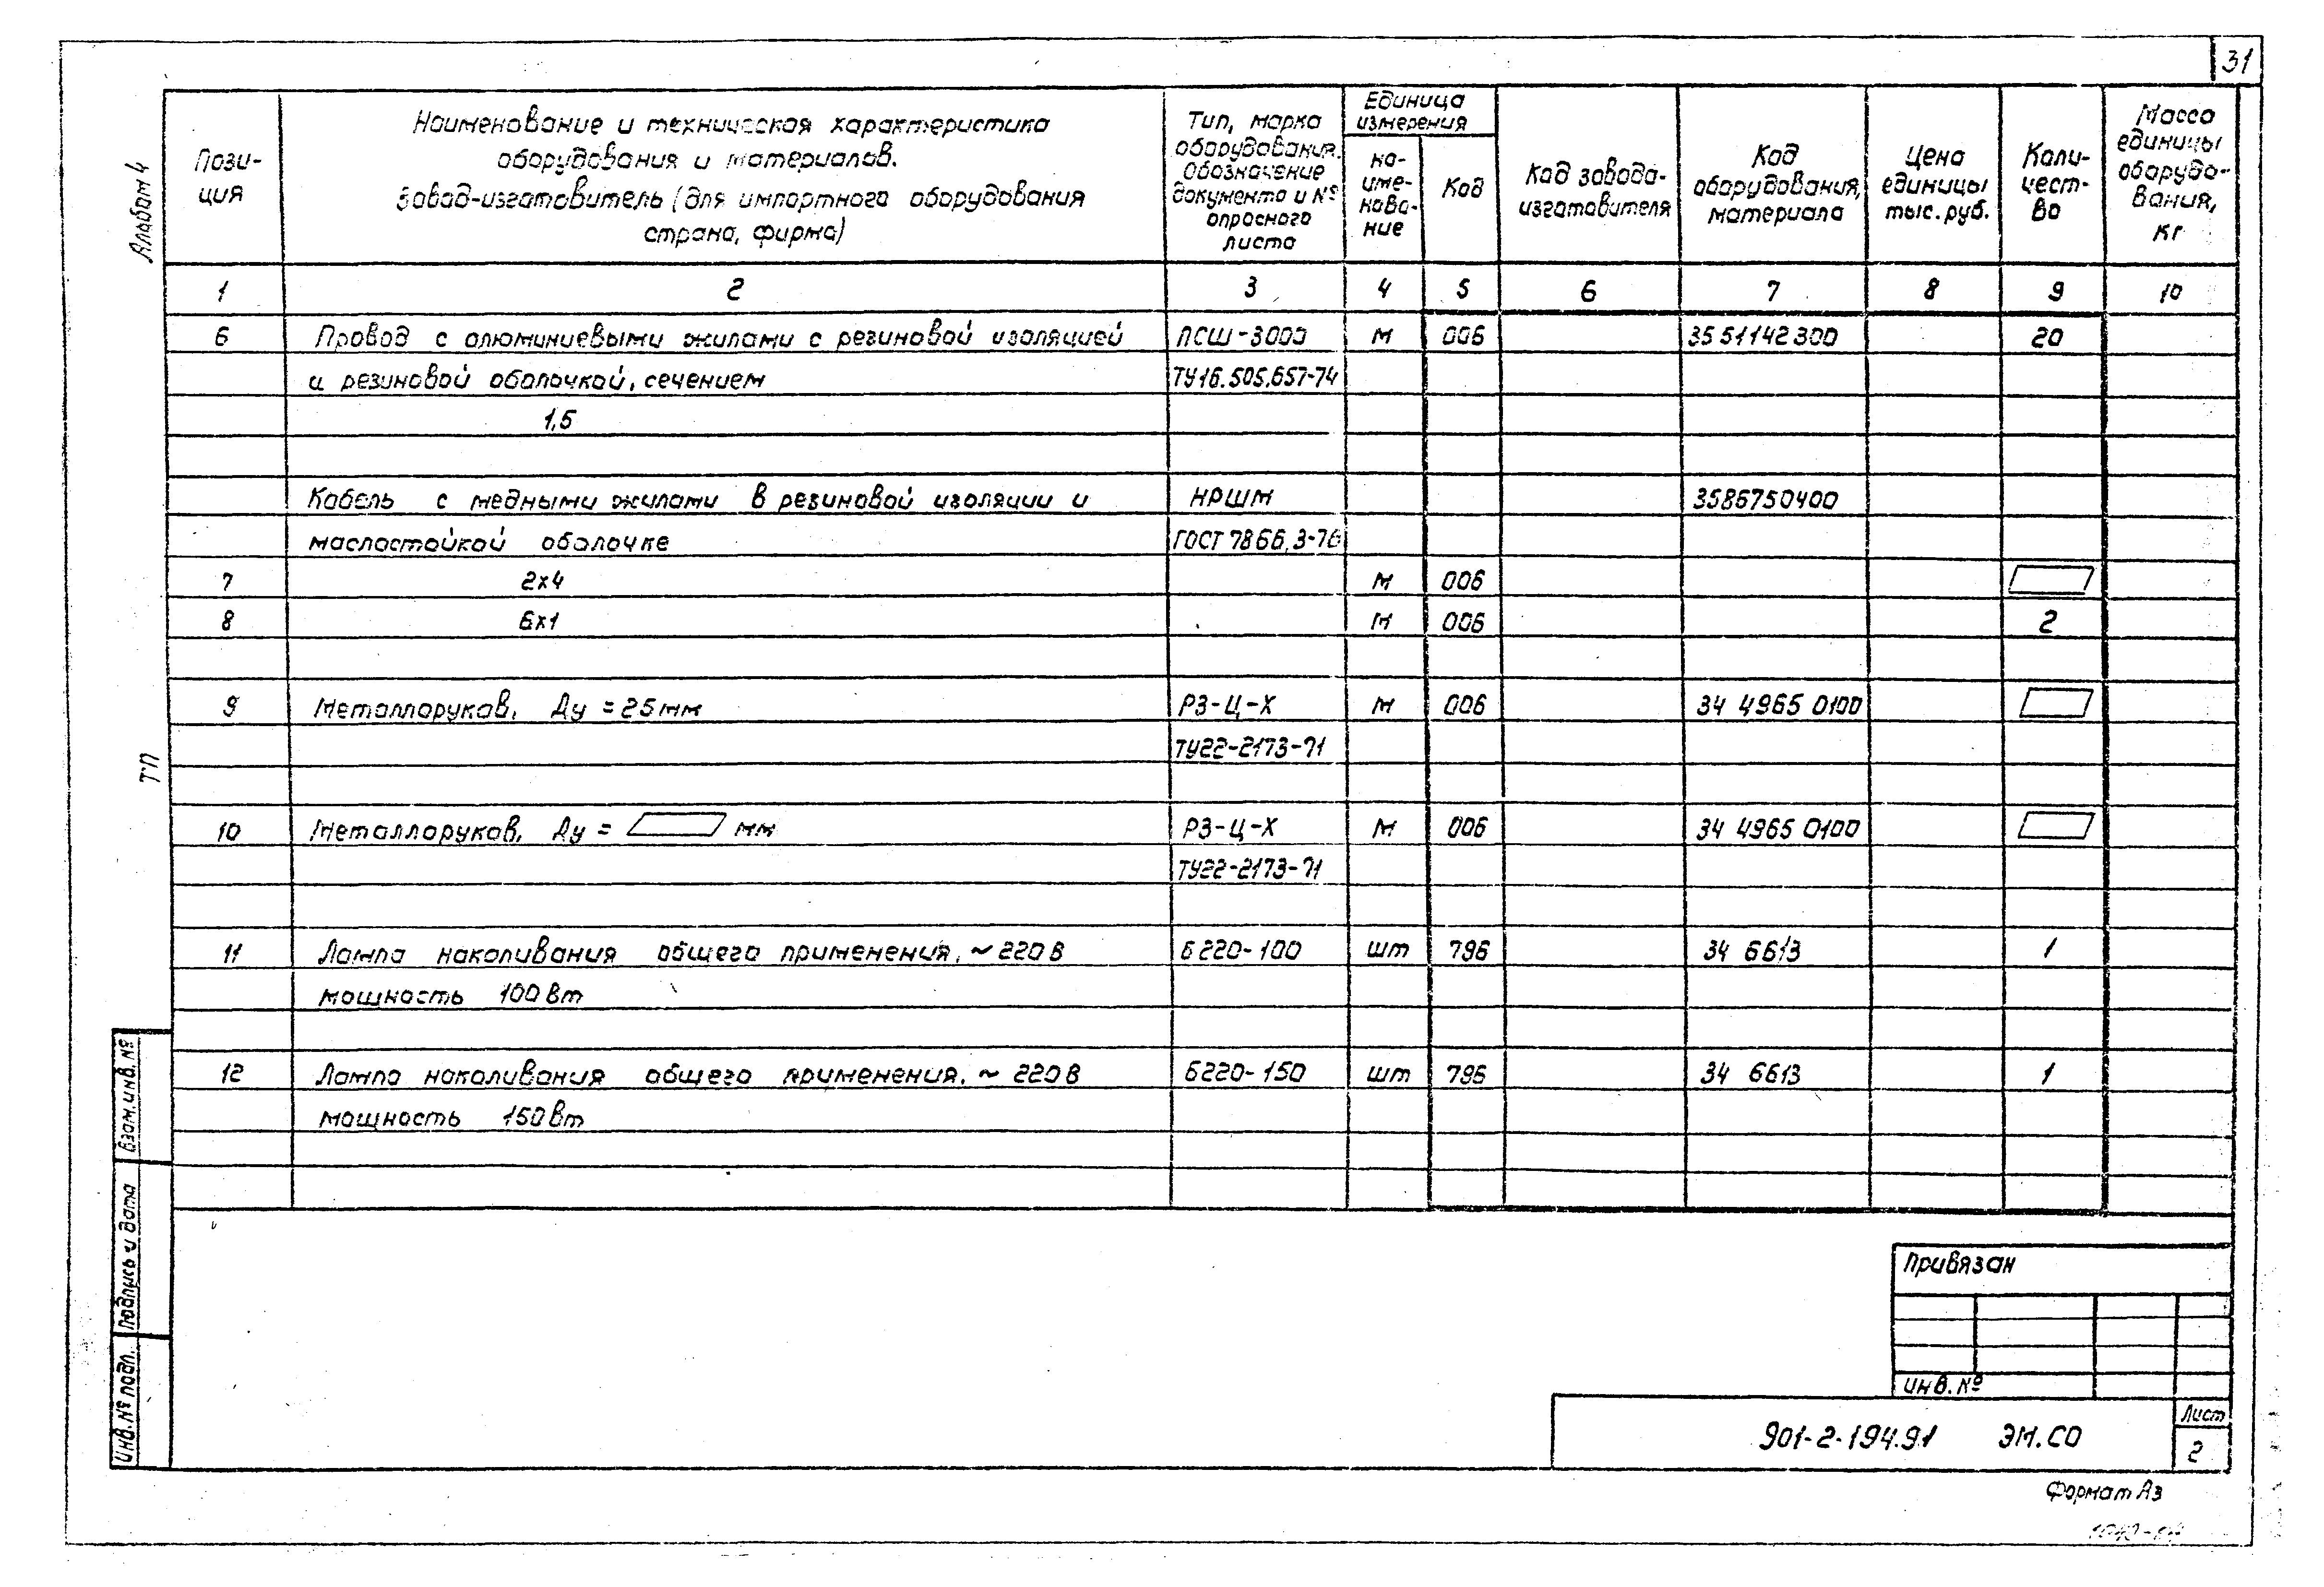 31
Альбом 4
ТП
Пози-
ция
Наименование и техническая характеристика
оборудования и материалов.
Завод-изготовитель (для импортного оборудования
страна, фирма)
Тип, марка
оборудования.
Обозначение
документа и №
опросного
листа
Единица
измерения
на-
име-
нова-
ние
Код
Код завода-
изготовителя
Код
оборудования,
материала
Цена
единицы
тыс. руб.
Коли-
чест-
во
Масса
единицы
оборудо-
вания,
кг
1 2 3 4 5 6 7 8 9 10
6 Провод с алюминиевыми жилами с резиновой изоляцией ПСШ-3000 м 006 35 51142300 20
и резиновой оболочкой, сечением ТУ16.505.657-74
1,5
Кабель с медными жилами в резиновой изоляции и НРШМ 3586750400
маслостойкой оболочке ГОСТ 7866.3-76
7 2х4 м 006
8 6х1 м 006 2
9 Металлорукав, Ду = 25 мм РЗ-Ц-Х м 006 34 4965 0100
ТУ22-2173-71
10 Металлорукав, Ду = мм РЗ-Ц-Х м 006 34 4965 0100
ТУ22-2173-71
11 Лампа накаливания общего применения, ~ 220 В Б220-100 шт 796 34 6613 1
мощность 100 Вт
12 Лампа накаливания общего применения, ~ 220 В Б220-150 шт 796 34 6613 1
мощность 150 Вт
Взам. инв. №
Подпись и дата
Инв. № подл.
Привязан
Инв. №
901-2-194.91 ЭМ.СО
Лист
2
Формат А3